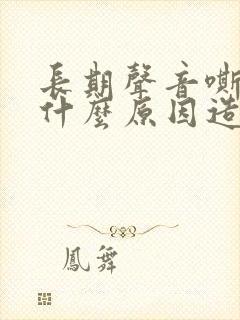 長期聲音嘶
什麼原因造
鳳舞